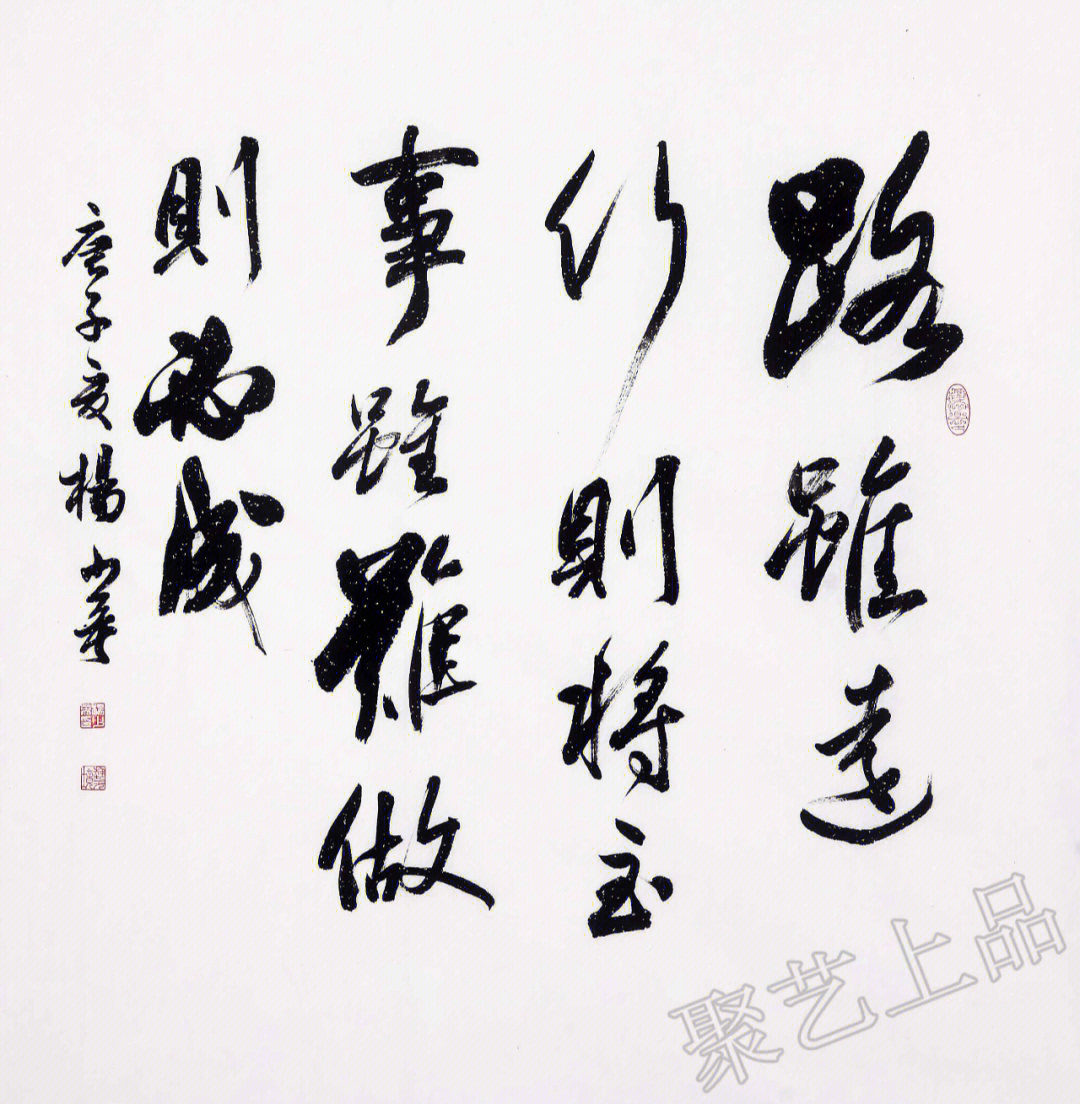 路雖遠
行則將至
事雖難做
則必成
庚子夏楊小華
聚艺上品